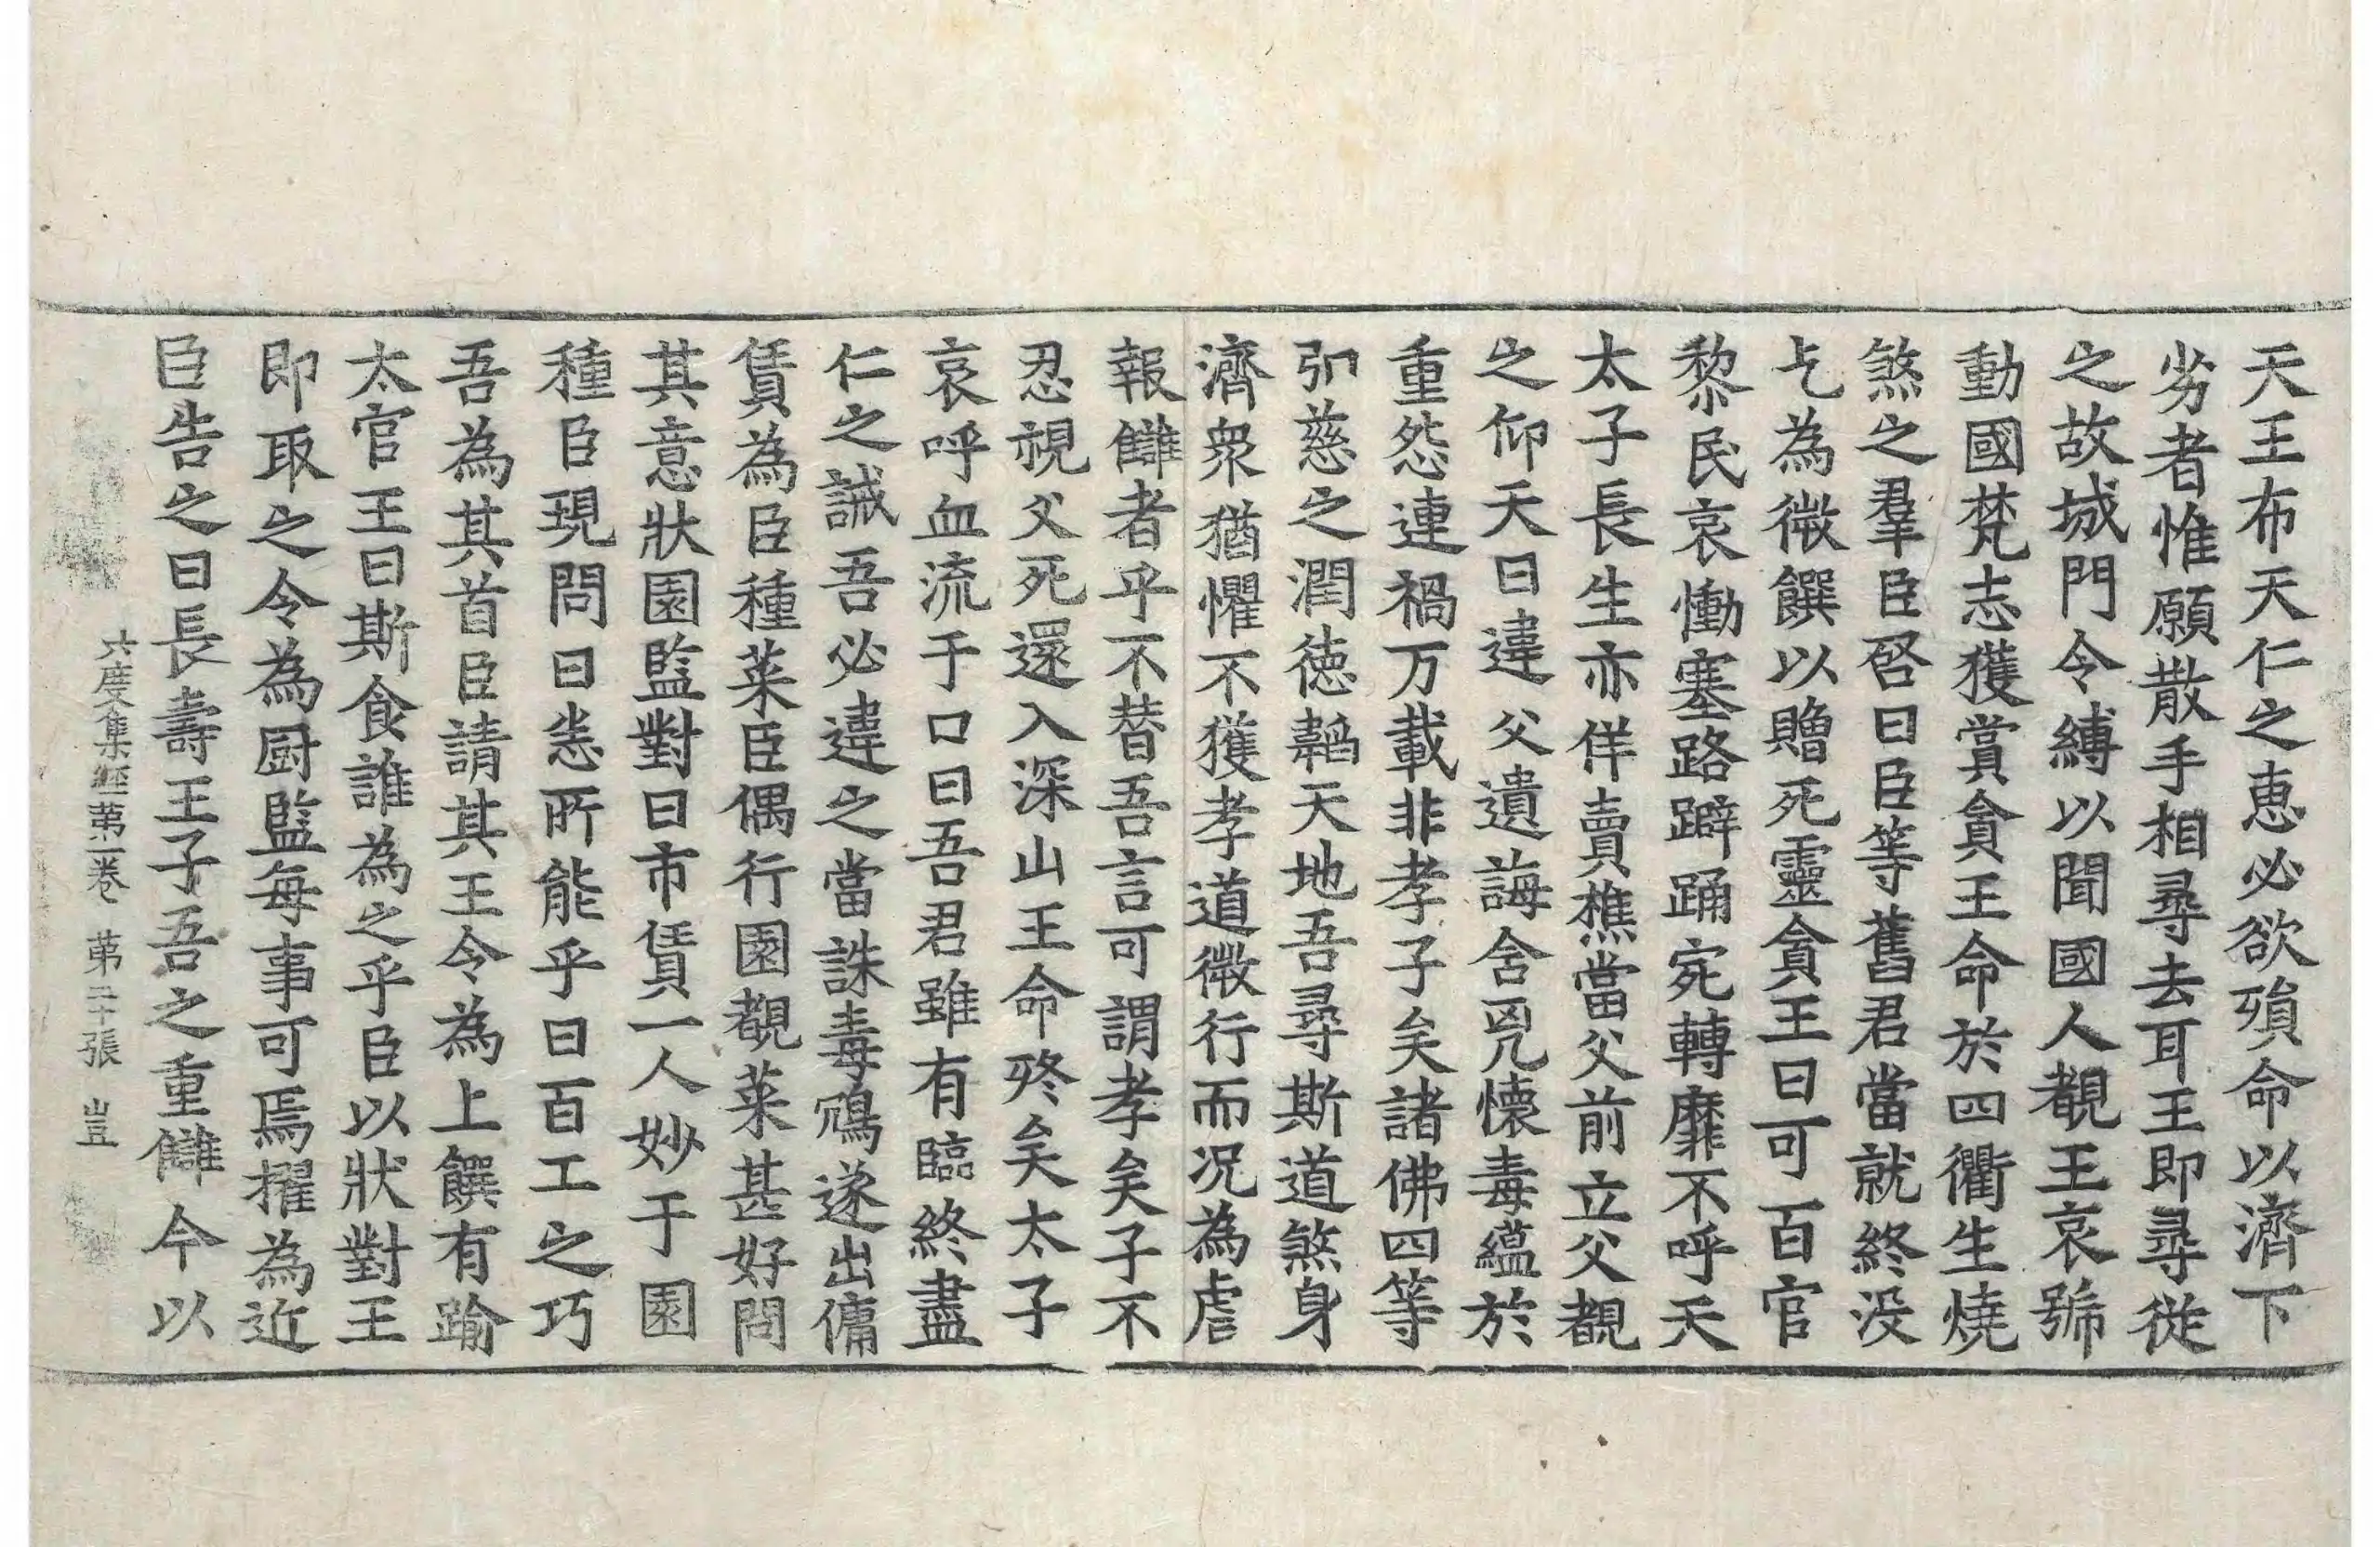 天王布天仁之惠必欲殞命以濟下
劣者惟願散手相尋去耳王即尋從
之故城門令縛以聞國人覩王哀號
動國梵志獲賞貪王命於四衢生燒
煞之羣臣啓曰臣等舊君當就終没
乞為微饌以贈死靈貪王曰可百官
黎民哀慟塞路躃踊宛轉靡不呼天
太子長生亦佯賣樵當父前立父覩
之仰天曰違父遺誨含兇懷毒蘊於
重怨連禍万載非孝子矣諸佛四等
弘慈之潤德韜天地吾尋斯道煞身
濟衆猶懼不獲孝道微行而況為虐
報讎者乎不替吾言可謂孝矣子不
忍視父死還入深山王命終矣太子
哀呼血流于口曰吾君雖有臨終盡
仁之誡吾必違之當誅毒鴆遂出傭
賃為臣種菜臣偶行園覩菜甚好問
其意狀園監對曰市賃一人妙于園
種臣現問曰悉所能乎曰百工之巧
吾為其首臣請其王令為上饌有踰
太官王曰斯食誰為之乎臣以狀對王
即取之令為厨監每事可焉擢為近
臣告之曰長壽王子吾之重讎今以
六度集經第一卷 第二十張 豈